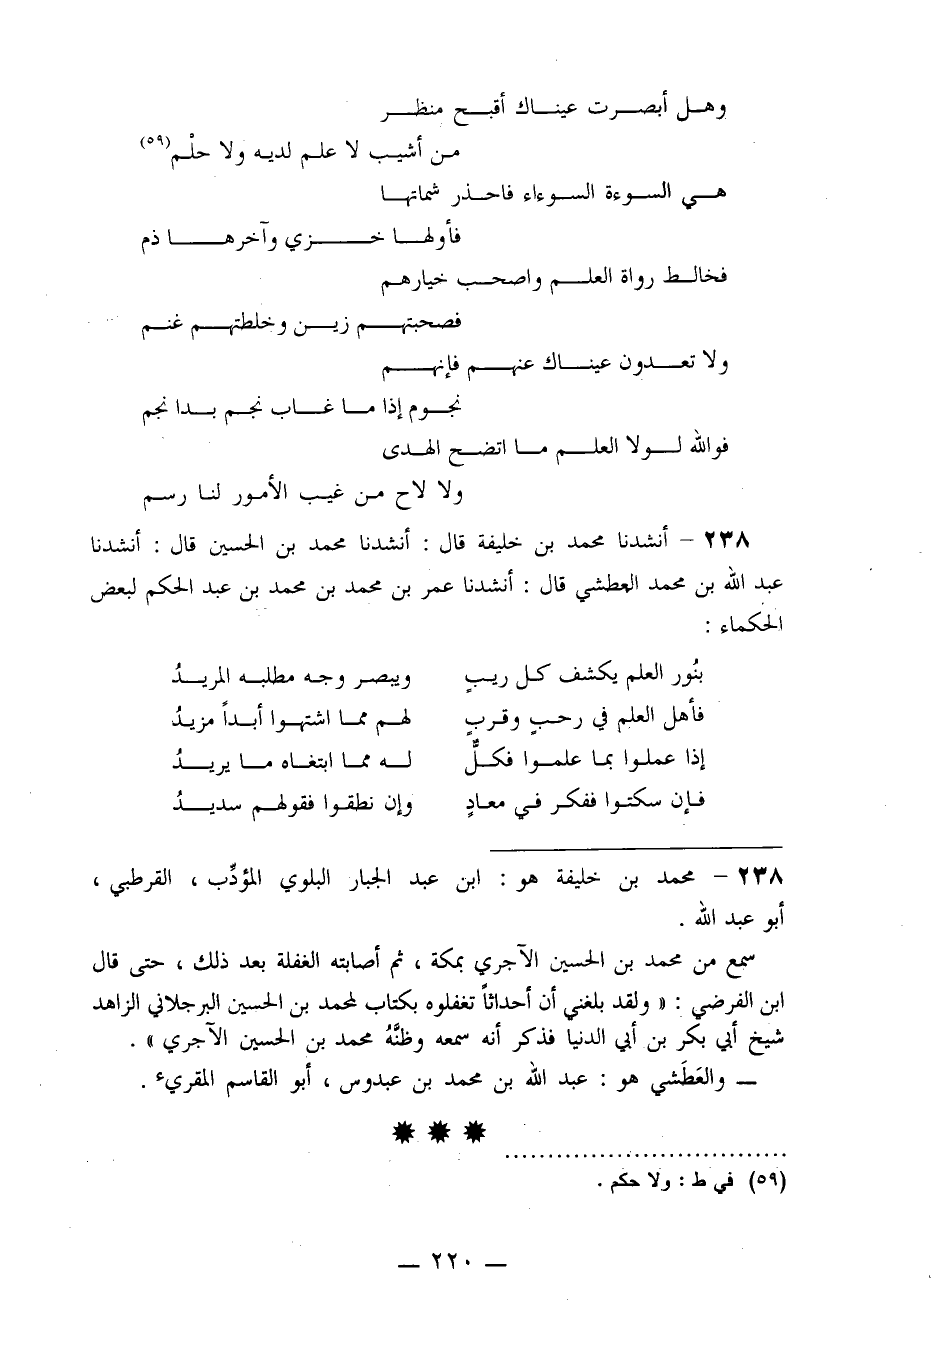 وهل أبصرت عيناك أقبح منظر
من أشيب لا علم لديه ولا حلْم(٥٩)
هي السوءة السوءاء فاحذر شماتها
فأولها خزي وآخرها ذم
فخالط رواة العلم واصحب خيارهم
فصحبتهم زين وخلطتهم غنم
ولا تعدون عيناك عنهم فإنهم
نجوم إذا ما غاب نجم بدا نجم
فوالله لولا العلم ما اتضح الهدى
ولا لاح من غيب الأمور لنا رسم
٢٣٨ – أنشدنا محمد بن خليفة قال : أنشدنا محمد بن الحسين قال : أنشدنا
عبد الله بن محمد العطشي قال : أنشدنا عمر بن محمد بن محمد بن عبد الحكم لبعض
الحكماء :
بنُور العلم يكشف كل ريبٍ ويبصر وجه مطلبه المريدُ
فأهل العلم في رحبٍ وقربٍ لهم مما اشتهوا أبداً مزيدُ
إذا عملوا بما علموا فكلٌّ له مما ابتغاه ما يريدُ
فإن سكتوا ففكر في معادٍ وإن نطقوا فقولهم سديدُ
٢٣٨ – محمد بن خليفة هو : ابن عبد الجبار البلوي المؤدِّب ، القرطبي ،
أبو عبد الله .
سمع من محمد بن الحسين الآجري بمكة ، ثم أصابته الغفلة بعد ذلك ، حتى قال
ابن الفرضي : « ولقد بلغني أن أحداثاً تغفلوه بكتاب لمحمد بن الحسين البرجلاني الزاهد
شيخ أبي بكر بن أبي الدنيا فذكر أنه سمعه وظنَّهُ محمد بن الحسين الآجري » .
— والعَطَشي هو : عبد الله بن محمد بن عبدوس ، أبو القاسم المقريء .
(٥٩) في ط : ولا حكم .
— ٢٢٠ —